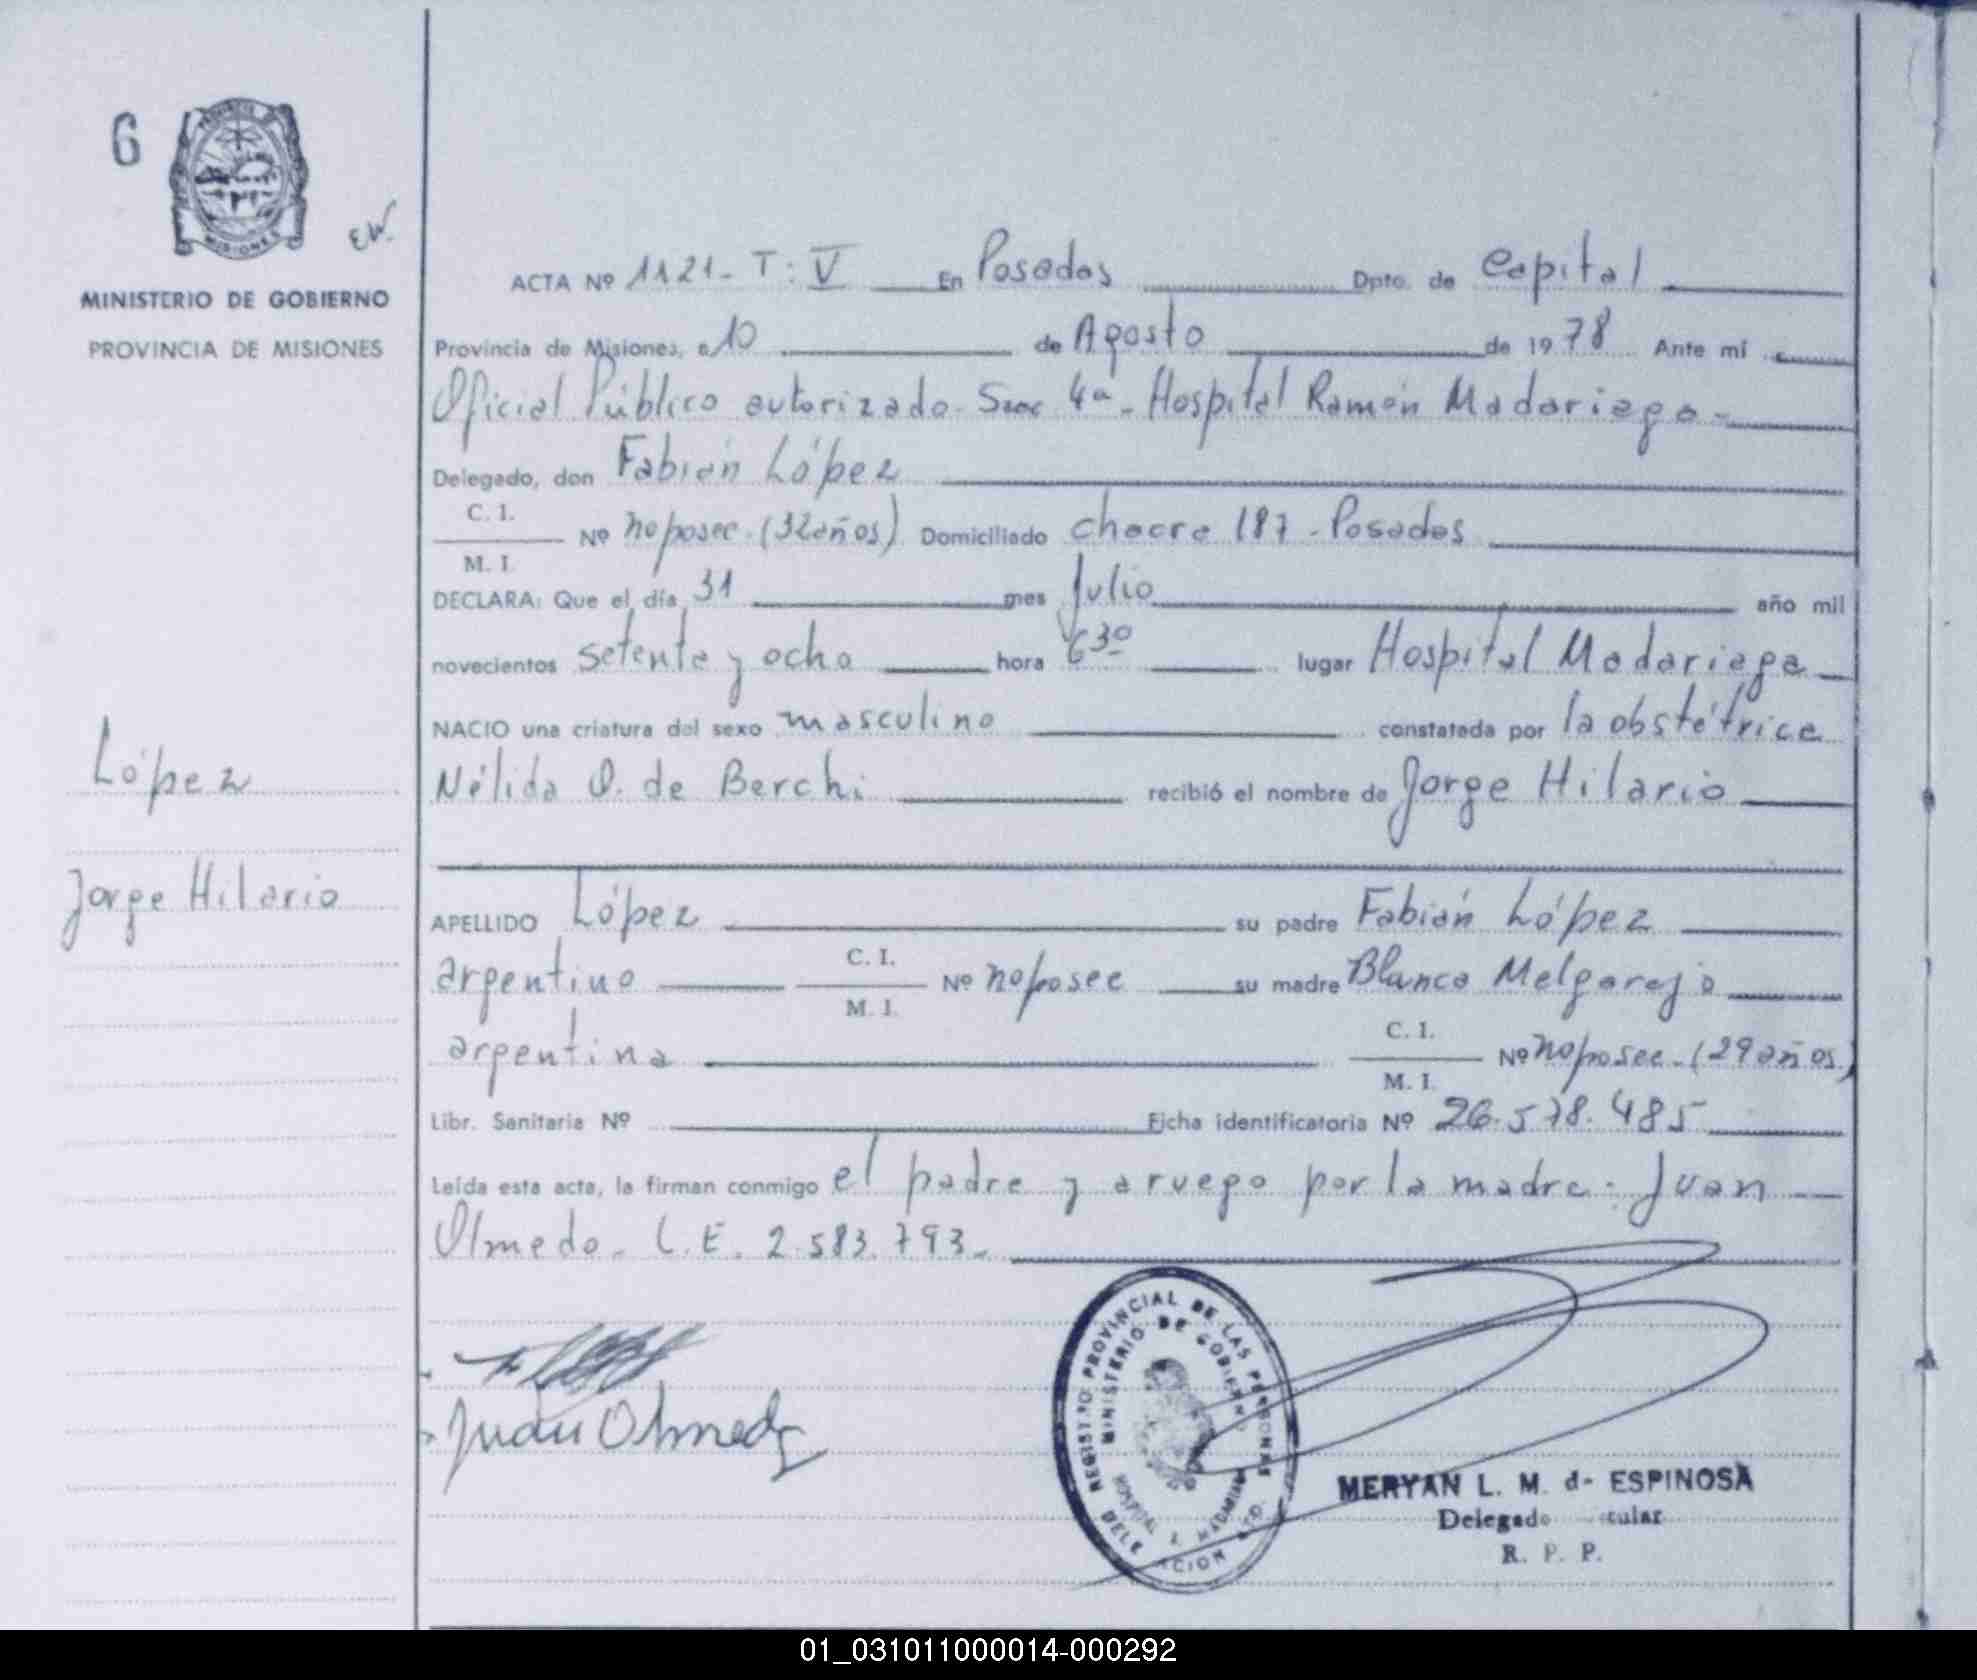 6
E.W.
MINISTERIO DE GOBIERNO
PROVINCIA DE MISIONES
López
Jorge Hilario
ACTA Nº 1121- T: V En Posadas Dpto. de Capital
Provincia de Misiones, a 10 de Agosto de 1978 Ante mí
Oficial Público autorizado Secc 4ª - Hospital Ramón Madariaga -
Delegado, don Fabián López
C. I.
Nº no posee. (32 años) Domiciliado chacra 187 - Posadas
M. I.
DECLARA: Que el día 31 mes Julio año mil
novecientos setenta y ocho hora 6 30 lugar Hospital Madariaga
NACIO una criatura del sexo masculino constatada por la obstétrica
Nélida O. de Berchi recibió el nombre de Jorge Hilario
APELLIDO López su padre Fabián López
C. I.
argentino Nº no posee su madre Blanca Melgarejo
M. I.
C. I.
argentina Nº no posee. (29 años)
M. I.
Libr. Sanitaria Nº Ficha identificatoria Nº 26.578.485
Leída esta acta, la firman conmigo el padre y a ruego por la madre: Juan
Olmedo - L.E. 2.583.793.-
Juan Olmedo
REGISTRO PROVINCIAL DE LAS PERSONAS
MINISTERIO DE GOBIERNO
HOSPITAL
MERYAN L. M. d- ESPINOSA
Delegado
R. P. P.
01_031011000014-000292